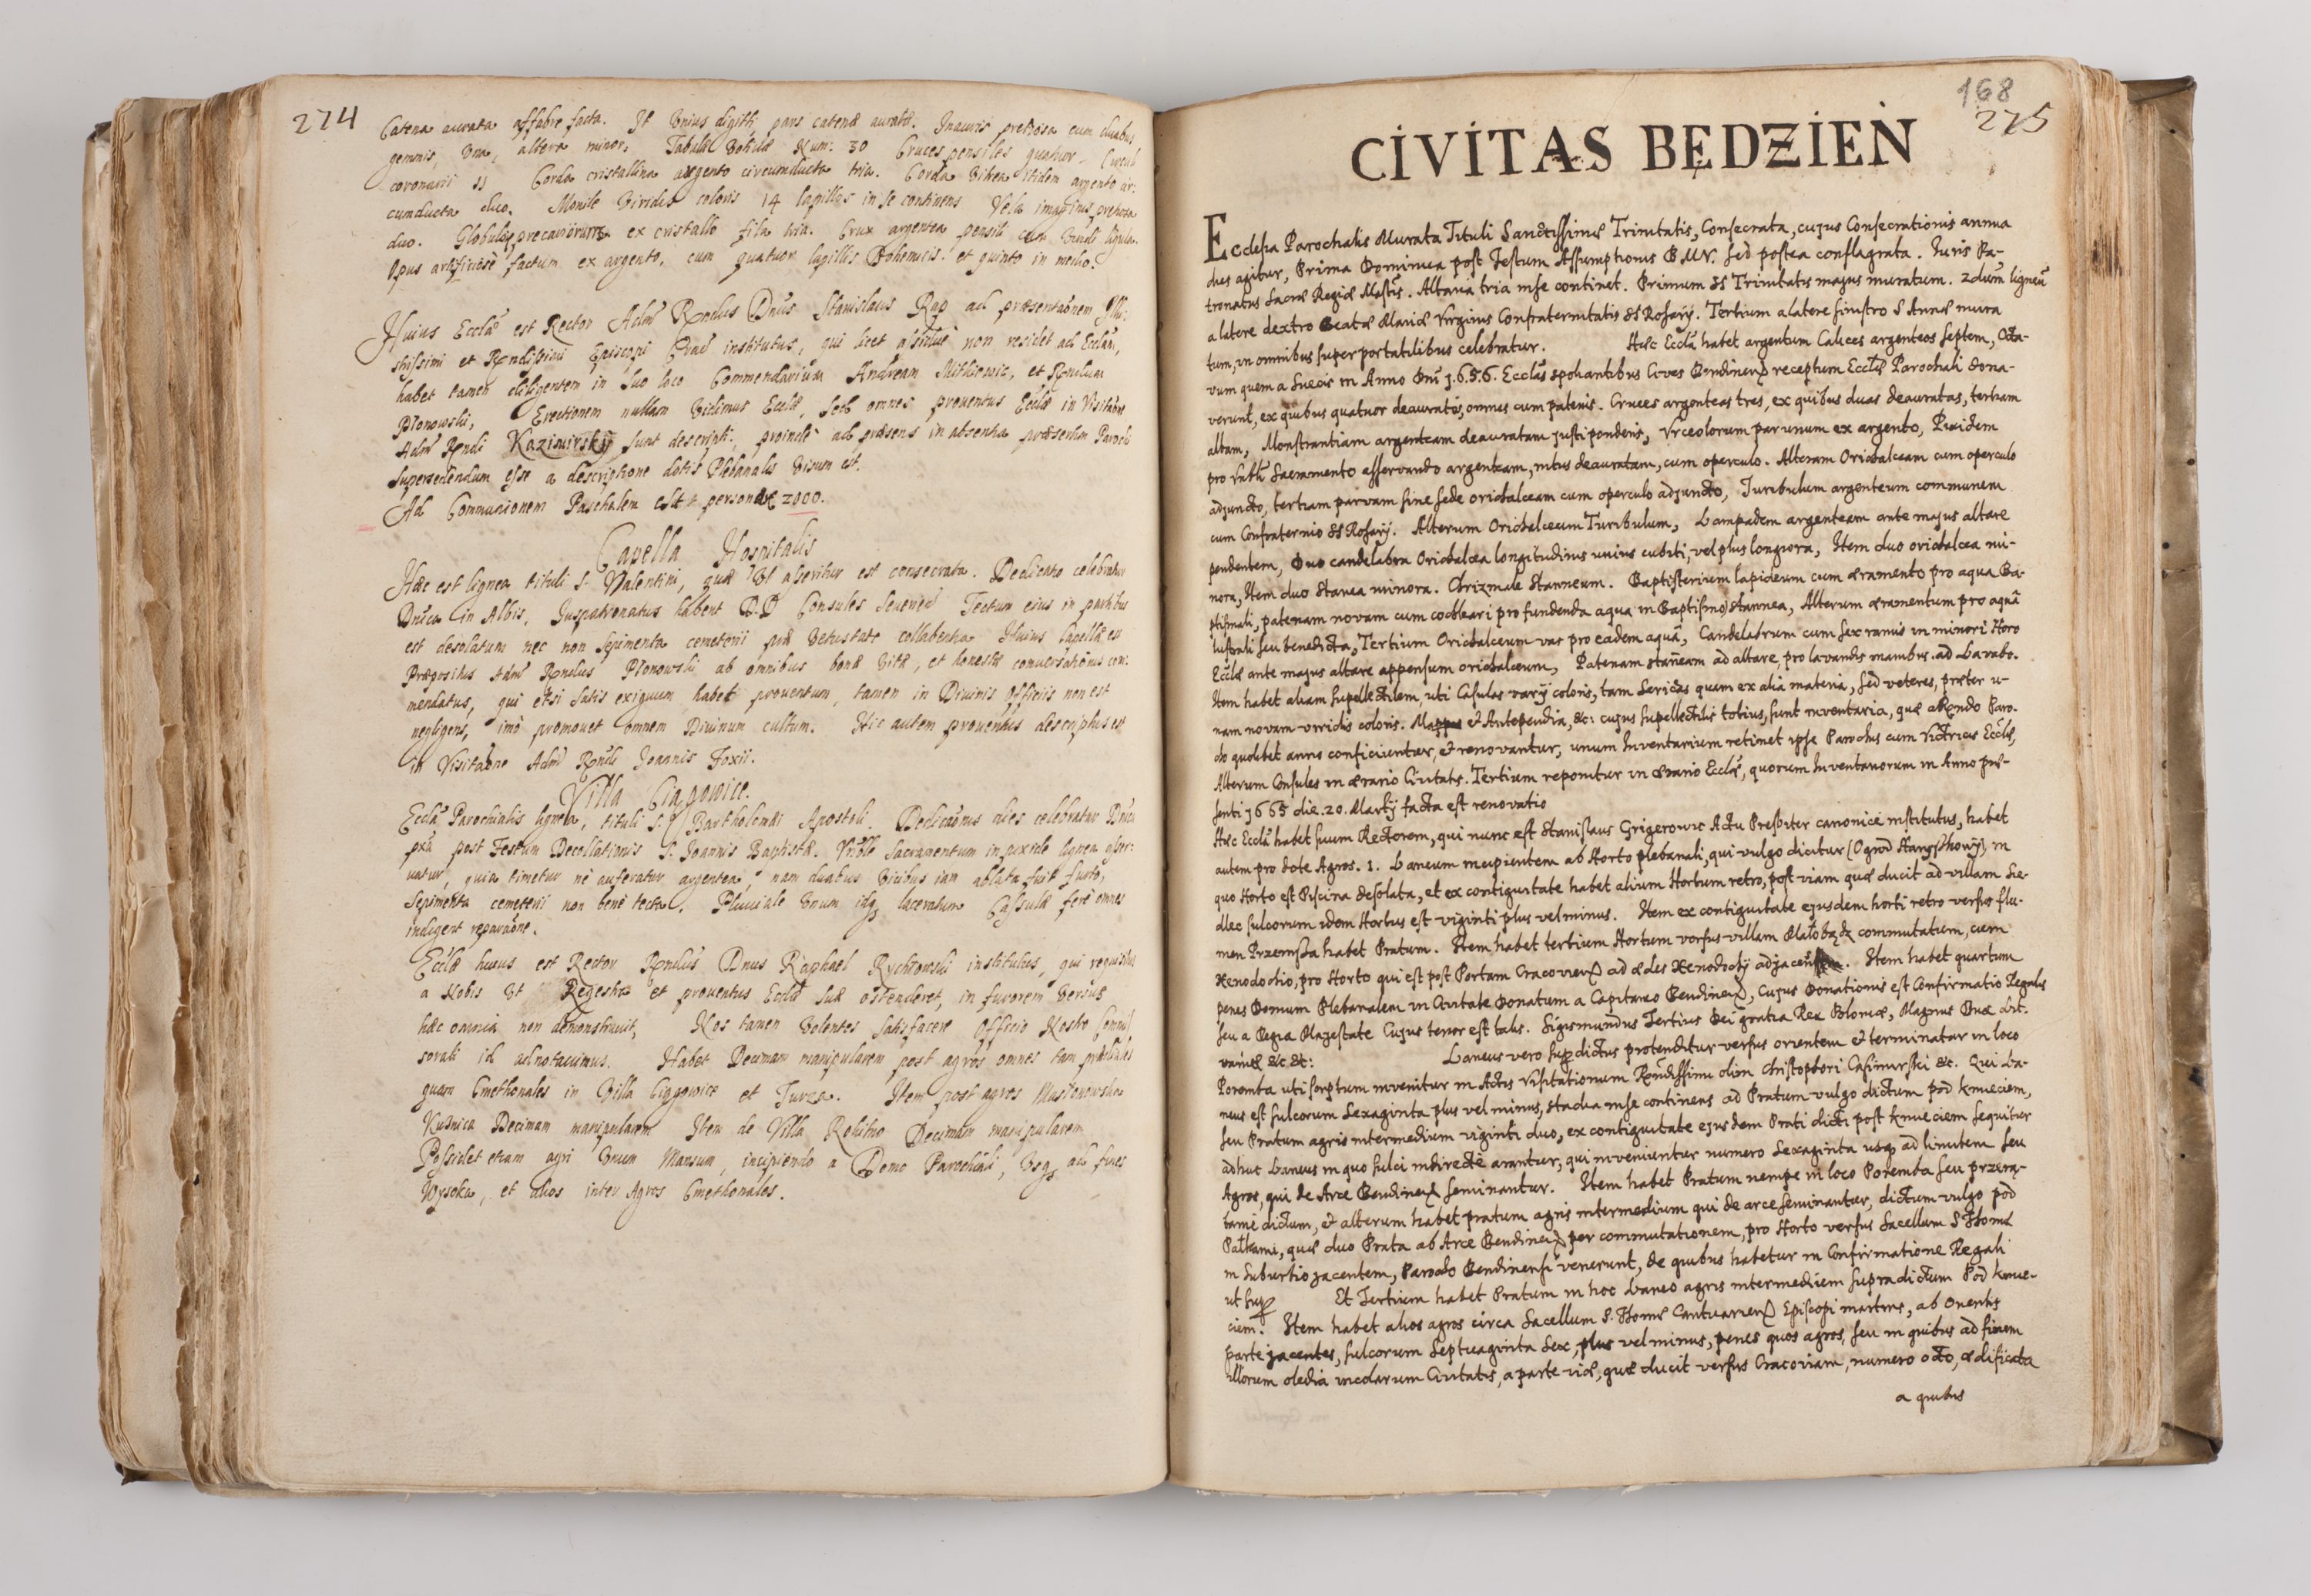 274
Catena aurata affabre facta. It Unius digiti pars catenæ auratæ. Inauris pretiosa cum duabus
gemmis, Una, altera minor. Tabulæ Votivæ Num: 30 Cruces pensiles quatuor. Circuli
coronarii 11 Corda cristallina argento circumducta tria. Corda Vitrea itidem argento cir:
cumducta duo. Monile Viridis coloris 14 lapillos in se continens Vela imaginis pretiosa
duo. Globulos precatiorum ex cristallo fila tria. Crux argentea pensili cum Viridi ligula.
Opus artificiose factum ex argento, cum quatuor lapillis Bohemicis. et quinto in medio.
Huius Ecclæ est Rector Adm Rndus Dnus Stanislaus Rap ad præsentaonem Illu:
strissimi et Rndissimi Episcopi Crac institutus, qui licet assidue non residet ad Ecclam,
habet tamen diligentem in suo loco Commendarium Andream Mitkiewic, et Rndum
Plonowski, Erectionem nullam Vidimus Ecclæ, sed omnes proventus Ecclæ in Visitaone
Adm Rndi Kazimirskij sunt descripti, proinde ad præsens in absentia præsertim Parochi
supersedendum esse a descriptione dotis Plebanalis Visum est.
Ad Communionem Paschalem personæ 2000.
Capella Hospitalis
Hæc est lignea tituli S. Valentini, quæ Ut asseritur est consecrata. Dedicatio celebratur
Dnica in Albis, Juspatronatus habent D.D Consules Severien Tectum eius in partibus
est desolatum nec non sepimenta cemeterii præ Vetustate collabentia Huius Capellæ est
Præpositus Adm Rndus Plonowski ab omnibus bonæ Vitæ, et honestæ conversationis com:
mendatus, qui etsi satis exiguum habet proventum, tamen in Divinis Officiis non est
negligens, imò promovet omnem Divinum cultum. Hic autem proventus descriptus est
in Visitaone Adm Rndi Joannis Foxii.
Villa Ciągowice.
Eccla Parochialis lignea, tituli S. Bartholomæi Apostoli. Dedicaonis dies celebratur Dnica
pxa post Festum Decollationis S. Joannis Baptistæ. Vrbile Sacramentum in puxide lignea asser:
vatur, quia timetur nè auferatur argentea, nam duabus Vicibus iam ablata fuit furto,
Sepimenta cemeterii non benè tecta. Pluviale Unum idq laceratum Cassulæ ferè omnes
indigent reparaone.
Ecclæ huius est Rector Rndus Dnus Raphael Rychlowski institutus, qui requisitus
a Nobis Ut Regestra et proventus Ecclæ suæ ostenderet, in furorem Versus
hæc omnia non demonstravit, Nos tamen Volentes satisfacere Officio Nostro Commis
soriali id adnotavimus. Habet Decimam manipularem post agros omnes tam prædiales
quam Cmethonales in Villa Ciągowice et Turza. Item post agros
Kuźnica Decimam manipularem Item de Villa Rokitno Decimam manipularem
Possidet etiam agri Unum Mansum, incipiendo a Domo Parochiali, Usq ad fines
Wysoka, et alios inter Agros Cmethonales.
168
275
CIVITAS BĘDZIEN
Ecclesia Parochialis Murata Tituli Sanctissimæ Trinitatis, Consecrata, cujus Consecrationis annua
dies agitur, Prima Dominica post Festum Assumptionis B M V. sed postea conflagrata. Iuris Pa-
tronatus Sacræ Regiæ Mastis. Altaria tria in se continet. Primum SS Trinitatis majus muratum. 2dum ligneum
a latere dextro Beatæ Mariæ Virginis Confraternitatis SS Rosarij. Tertium a latere sinistro S Annæ mura
tum, in omnibus super portatilibus celebratur. Hæc Eccla habet argentum Calices argenteos septem, Octa-
vum quem a Suecis in Anno Dni 1.6.5.6. Ecclas spoliantibus Cives Bendinen receptum Ecclæ Parochiali dona-
verunt, ex quibus quatuor deauratos, omnes cum patenis. Cruces argenteas tres, ex quibus duas deauratas, tertiam
albam, Monstrantiam argenteam deauratam justi ponderis, Urceolorum par unum ex argento, Pixidem
pro Smo Sacramento asservando argenteam, intus deauratam, cum operculo. Alteram Orichalceam cum operculo
adjuncto, tertiam parvam sine sede orichalceam cum operculo adjuncto, Turibulum argenteum communem
cum Confraternio SS Rosarij. Alterum Orichalceum Turibulum, Lampadem argenteam ante majus altare
pendentem, Duo candelabra Orichalcea longitudinis unius cubiti, vel plus longiora, Item duo orichalcea mi-
nora, Item duo Stanea minora. Chrizmale Stanneum. Baptisterium lapideum cum æramento pro aqua Ba-
ptismali, patenam novam cum cochleari pro fundenda aqua in Baptismo stannea, Alterum æramentum pro aquâ
lustrali seu benedicta, Tertium Orichalceum vas pro eadem aquâ, Candelabrum cum sex ramis in minori Horo
Ecclæ ante majus altare appensum orichalceum, Patenam stañeam ad altare, pro lavandis manibus ad Lavabo.
Item habet aliam supellectilem, uti Casulas varij coloris, tam Sericas quam ex alia materia, sed veteres, præter u-
nam novam viridis coloris. Mappas et Antependia, &c: cujus supellectilis totius, sunt inventaria, quæ a Rndo Paro-
cho quolibet anno conficiuntur, et renovantur, unum Inventarium retinet ipse Parochus cum Victricis Ecclæ,
Alterum Consules in ærario Civitatis. Tertium reponitur in ærario Ecclæ, quorum Inventariorum in Anno præ-
senti 1665 die 20. Martij facta est renovatio
Hæc Eccla habet suum Rectorem, qui nunc est Stanislaus Grigerowic Actu Presbiter canonicè institutus, habet
autem pro dote Agros. 1. Laneum incipientem ab Horto plebanali, qui vulgo dicitur in
quo Horto est Piscina desolata, et ex contiguitate habet alium Hortum retro, post viam quæ ducit ad villam Sie-
dlec sulcorum idem Hortus est viginti plus vel minus. Item ex contiguitate ejusdem horti retro versus flu-
men Przemsha habet Pratum. Item habet tertium Hortum versus villam Małobądz commutatum, cum
Xenodochio, pro Horto qui est post Portam Cracovien ad ædes Xenodochij adjacen. Item habet quartum
penes Domum Plebanalem in Civitate donatum a Capitaneo Bendinen, Cujus Donationis est Confirmatio Regalis
seu a Regia Majestate Cujus tenor est talis. Sigismundus Tertius Dei gratia Rex Poloniæ, Magnus Dux Lit-
vaniæ &c &c: Laneus vero supdictus protenditur versus orientem et terminatur in loco
Poremba uti scriptum invenitur in Actis Visitationum Rndissimi olim Christophori Casimirski &c. Qui La-
neus est sulcorum Sexaginta plus vel minus, stadia in se continens ad Pratum vulgo dictum pod kmieciem,
seu Pratum agris intermedium viginti duo, ex contiguitate ejusdem Prati dicti post kmieciem sequitur
adhuc Laneus in quo sulci indirectè arantur, qui inveniuntur numero Sexaginta usq ad limitem seu
Agros, qui de Arce Bendinen seminantur. Item habet Pratum nempe in loco Poremba seu przerą-
tami dictum, et alterum habet pratum agris intermedium qui de arce seminantur, dictum vulgo pod
Pałkami, quæ duo Prata ab Arce Bendinen per commutationem, pro Horto versus Sacellum S Thomæ
in Suburbio jacentem, Parocho Bendinensi venerunt, de quibus habetur in Confirmatione Regali
ut sup Et Tertium habet Pratum in hoc Laneo agris intermedium supradictum Pod kmie-
ciem. Item habet alios agros circa Sacellum S. Thomæ Cantuarien Episcopi martiris, ab Orientis
parte jacentes, sulcorum Septuaginta Sex, plus vel minus, penes quos agros, seu in quibus ad finem
illorum incolarum Civitatis, a parte viæ, quæ ducit versus Cracoviam, numero octo, ædificata
a quibus